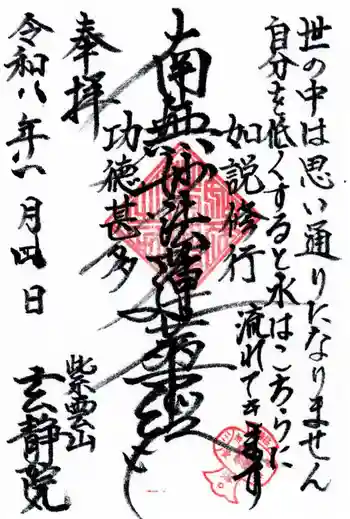 世の中は思い通りになりません
自分を低くすると水はこちらに
流れてきます
如説修行
南無妙法蓮華経
功徳甚多
奉拝
令和八年一月四日
紫雲山
玄静院